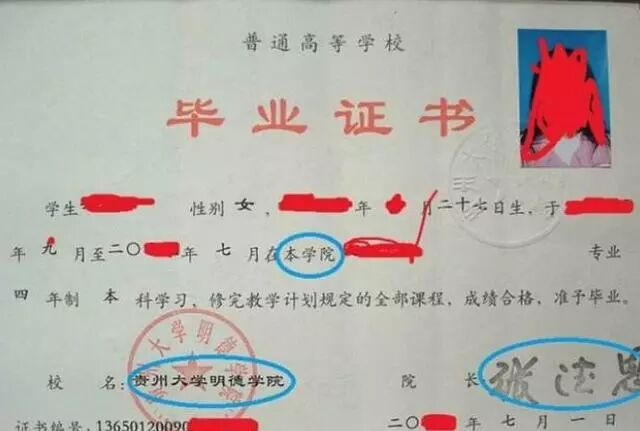 普通高等学校
毕业证书
学生 性别 女， 年 月二十七日生，于
年九月至二〇 年 七 月在本学院 专业
四 年制 本 科学习，修完教学计划规定的全部课程，成绩合格，准予毕业。
贵州大学明德学院
校 名：贵州大学明德学院 院 长：
证书编号：13650120090 二〇 年 七 月 一 日